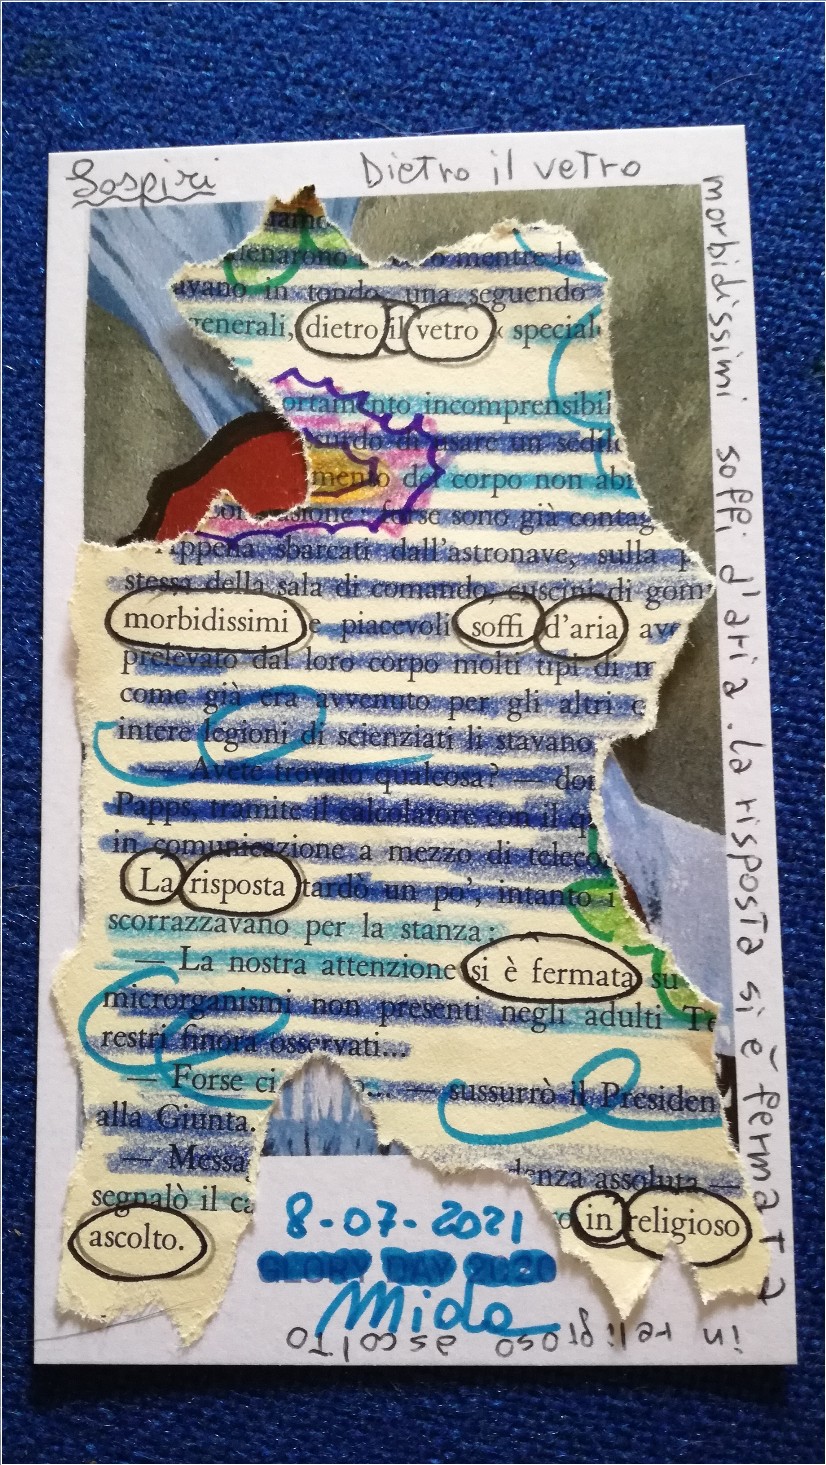 Sospiri
Dietro il vetro
morbidissimi soffi d'aria. La risposta si è fermata
in religioso ascolto
mentre le
avano in tondo una seguendo
generali, dietro il vetro special
ortamento incomprensibil
di usare un sedil
mento del corpo non abi
forse sono già contag
Appena sbarcati dall'astronave, sulla p
stessa della sala di comando, cuscini di gom
morbidissimi e piacevoli soffi d'aria ave
prelevato dal loro corpo molti tipi di m
come già era avvenuto per gli altri e
intere legioni di scienziati li stavano
— Avete trovato qualcosa? — dom
Papps, tramite il calcolatore con il q
in comunicazione a mezzo di teleco
La risposta tardò un po', intanto i
scorrazzavano per la stanza:
— La nostra attenzione si è fermata su
microrganismi non presenti negli adulti Te
restri finora osservati...
— Forse ci ... — sussurrò il Presiden
alla Giunta.
— Messag denza assoluta —
segnalò il ca
o in religioso
ascolto.
8-07-2021
GLORY DAY 2020
Mida